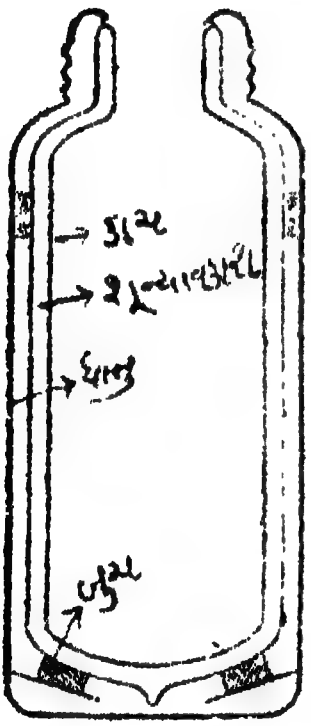 કાચ
શૂન્યાવકાશ
ધાતુ
બૂચ